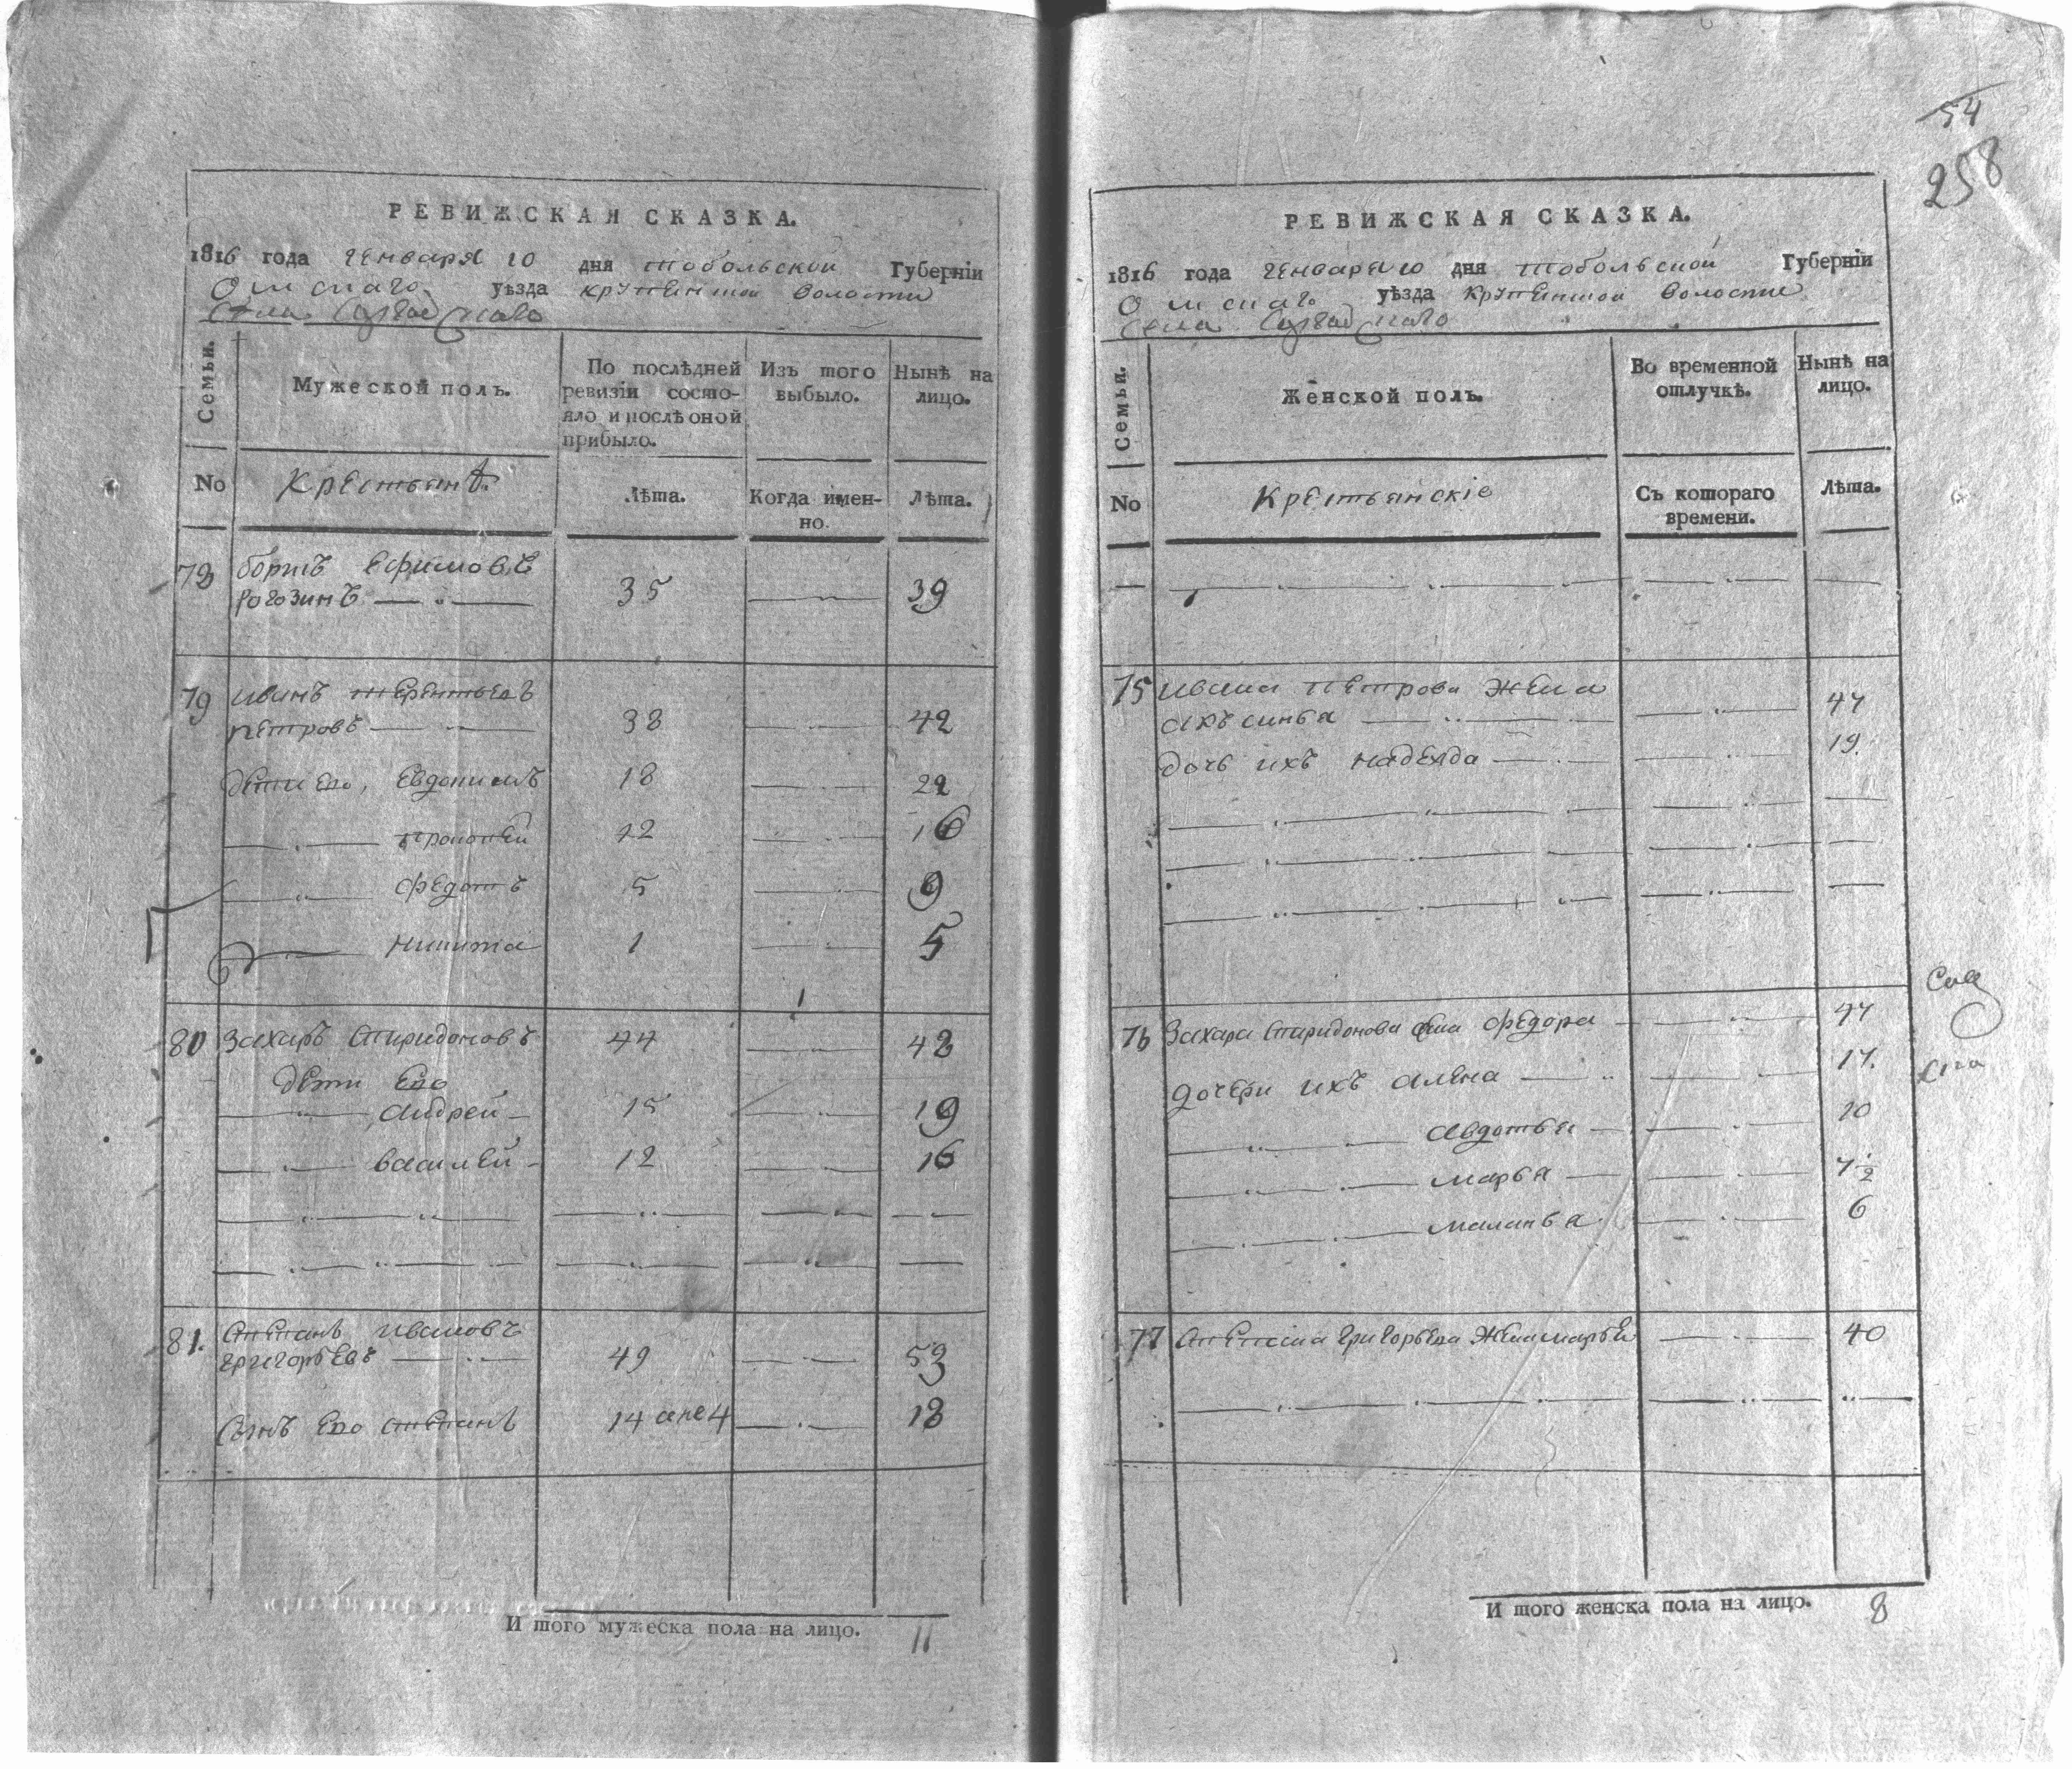 РЕВИЖСКАЯ СКАЗКА.
1816 года Генваря 10 дня Тобольской Губернїи
Омскаго уѣзда Крупенской волости
Села
Семьи. Мужеской полъ. По послѣдней ревизїи состояло и послѣ оной прибыло. Изъ того выбыло. Нынѣ на лицо.
No Крестьянъ Лѣта. Когда именно. Лѣта.
78 Борисъ Ефимовъ
Рогозинъ 35 39
79 Иванъ Терентьевъ
Петровъ 38 42
дети Ево, Евдокимъ 18 22
Прокопей 12 16
Федотъ 5 9
Никита 1 5
80 Захаръ Спиридоновъ 44 48
дети Ево
Андрей 15 19
Василей 12 16
81. Степанъ Ивановъ
Григорьевъ 49 53
Сынъ Ево Степанъ 14 18
И того мужеска пола на лицо. 11
54
258
РЕВИЖСКАЯ СКАЗКА.
1816 года Генваря 10 дня Тобольской Губернїи
Омскаго уѣзда Крупенской волости
Села
Семьи. Женской полъ. Во временной отлучкѣ. Нынѣ на лицо.
No Крестьянскіе Съ котораго времени. Лѣта.
75 Ивана Петрова Жена
Аксинья 44
дочь ихъ Надежда 19.
76 Захара Спиридонова жена Федора 44
дочери ихъ Алена 14.
Авдотья 10
Марья
Маланья 6
77 Степана Григорьева Жена Марья 40
И того женска пола на лицо. 8